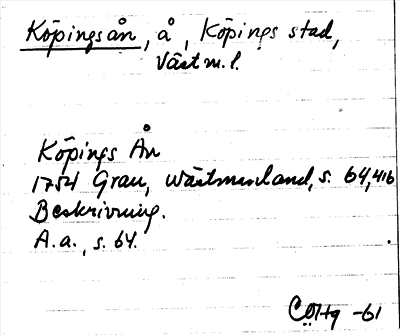 Köpingsån, å, Köpings stad,
Västm.l.
Köpings Ån
1754 Grau, Wästmanland, s. 64, 416
Beskrivning.
A.a., s. 64.
-61